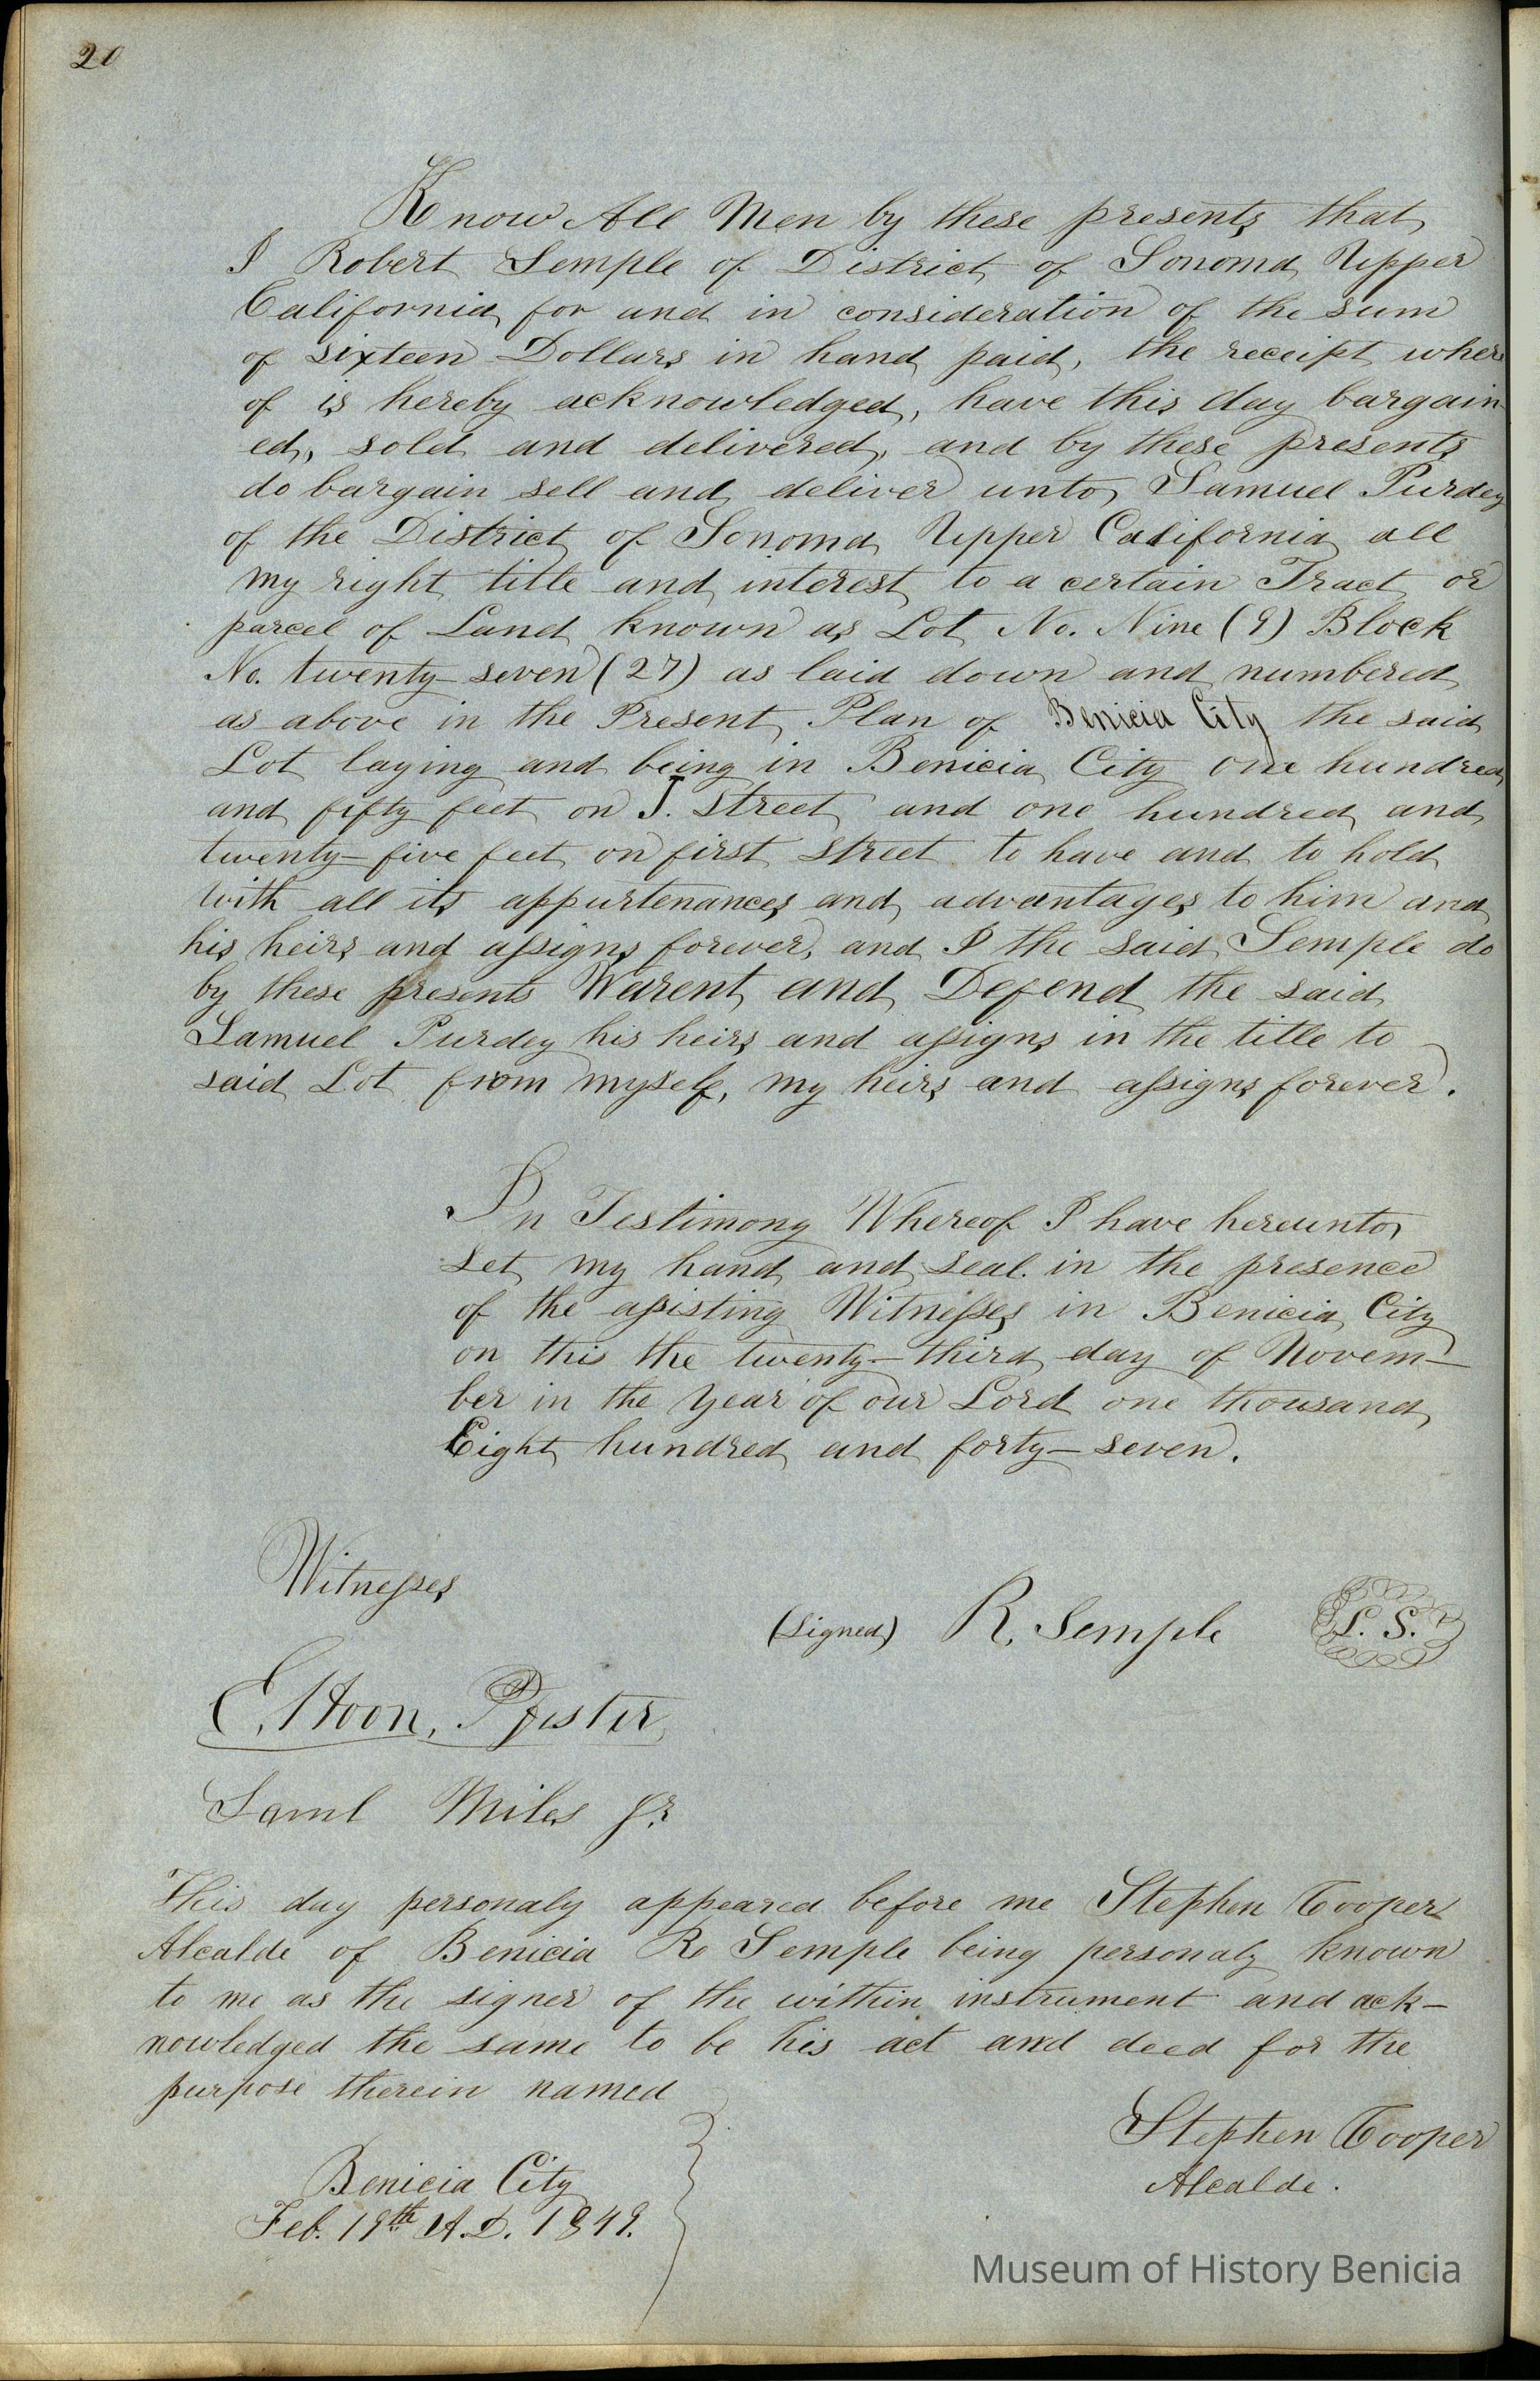 20
Know All Men by these presents that
I Robert Semple of District of Sonoma Upper
California for and in consideration of the sum
of sixteen Dollars in hand paid, the receipt where
of is hereby acknowledged, have this day bargain-
ed, sold and delivered, and by these presents
do bargain sell and deliver unto Samuel Purdey
of the District of Sonoma Upper California all
my right title and interest to a certain Tract or
parcel of Land known as Lot No. Nine (9) Block
No. twenty-seven (27) as laid down and numbered
as above in the Present Plan of Benicia City the said
Lot laying and being in Benicia City one hundred
and fifty feet on J. street and one hundred and
twenty-five feet on first street to have and to hold
with all its appurtenances and advantages to him and
his heirs and assigns forever, and I the said Semple do
by these presents Warent and Defend the said
Samuel Purdey his heirs and assigns in the title to
said Lot from myself, my heirs and assigns forever.
In Testimony Whereof I have hereunto
set my hand and seal. in the presence
of the assisting Witnesses in Benicia City
on this the twenty-third day of Novem-
ber in the year of our Lord one thousand
Eight hundred and forty-seven.
Witnesses
(signed) R. Semple L. S.
E. Hoon, Pfister
Saml Miles Jr.
This day personaly appeared before me Stephen Cooper
Alcalde of Benicia Ro Semple being personaly known
to me as the signer of the within instrument and ack-
nowledged the same to be his act and deed for the
purpose therein named
Stephen Cooper
Alcalde.
Benicia City
Feb. 19th A.D. 1849.
Museum of History Benicia